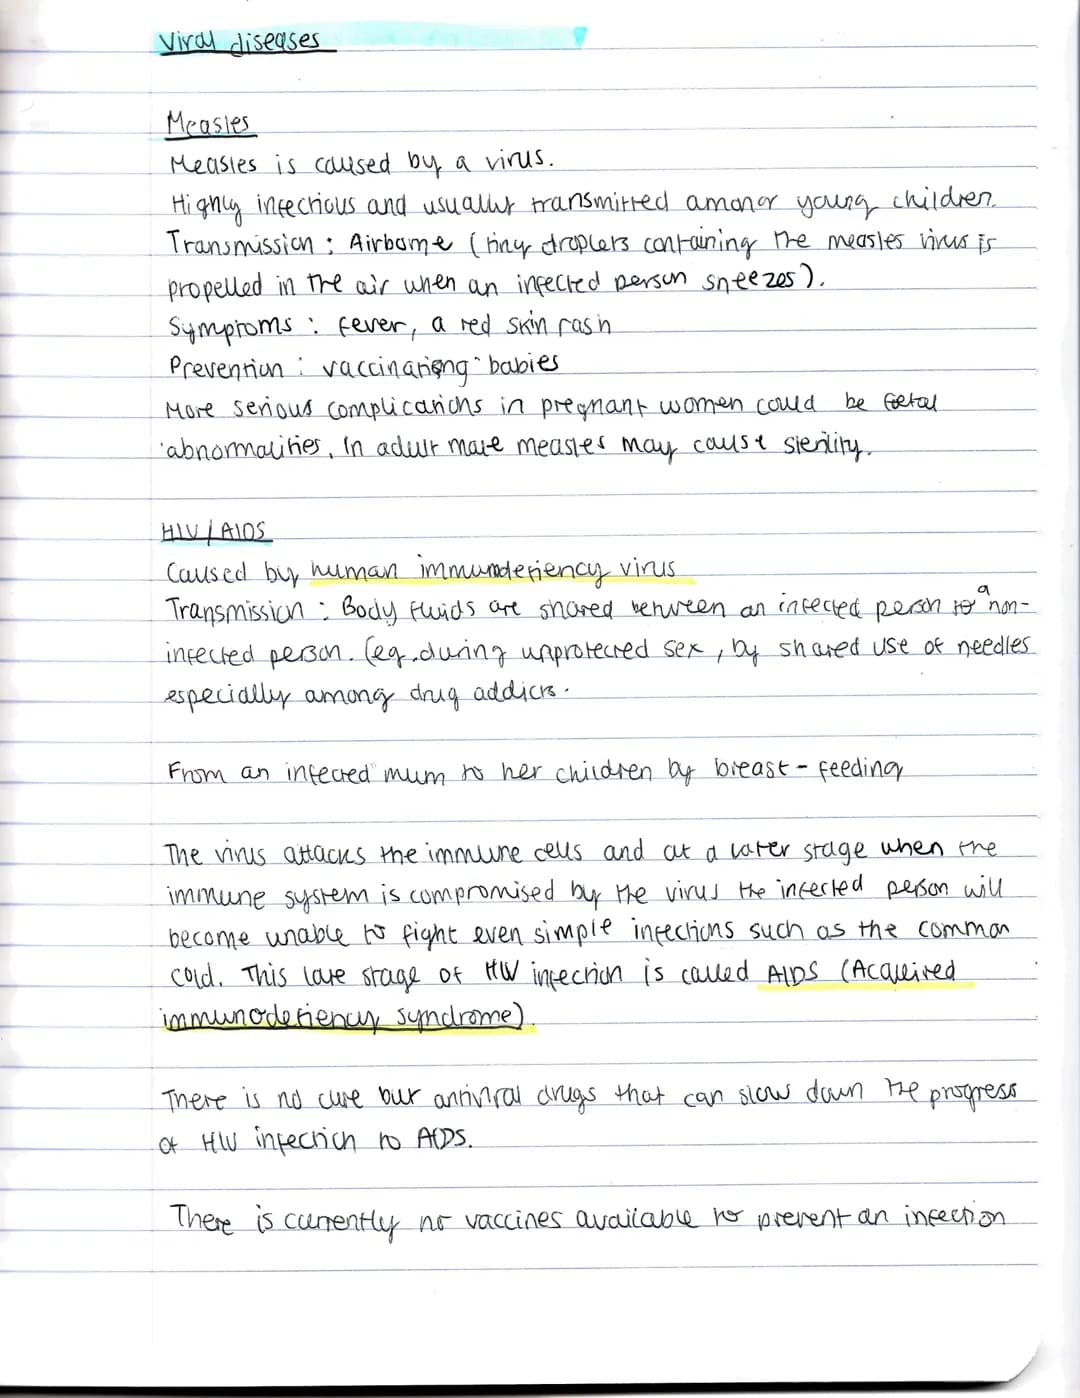 Viral diseases
Measles
Measles is caused by a virus.
Highly infectious and usually transmitted among young children.
Transmission : Airborne (tiny droplets containing the measles virus is
propelled in the air when an infected person sneezes).
Symptoms : fever, a red skin rash
Prevention : vaccinating babies
More serious complications in pregnant women could be foetal
abnormalities, In adult male measles may cause sterility.
HIV/AIDS
Caused by human immunodefiency virus
Transmission : Body fluids are shared between an infected person to a non-
infected person. (eg. during unprotected sex, by shared use of needles
especially among drug addicts.
From an infected mum to her children by breast-feeding
The virus attacks the immune cells and at a later stage when the
immune system is compromised by the virus the infected person will
become unable to fight even simple infections such as the common
cold. This late stage of HIV infection is called AIDS (Acquired
immunodefiency syndrome).
There is no cure but antiviral drugs that can slow down the progress
of HIV infection to AIDS.
There is currently no vaccines available to prevent an infection